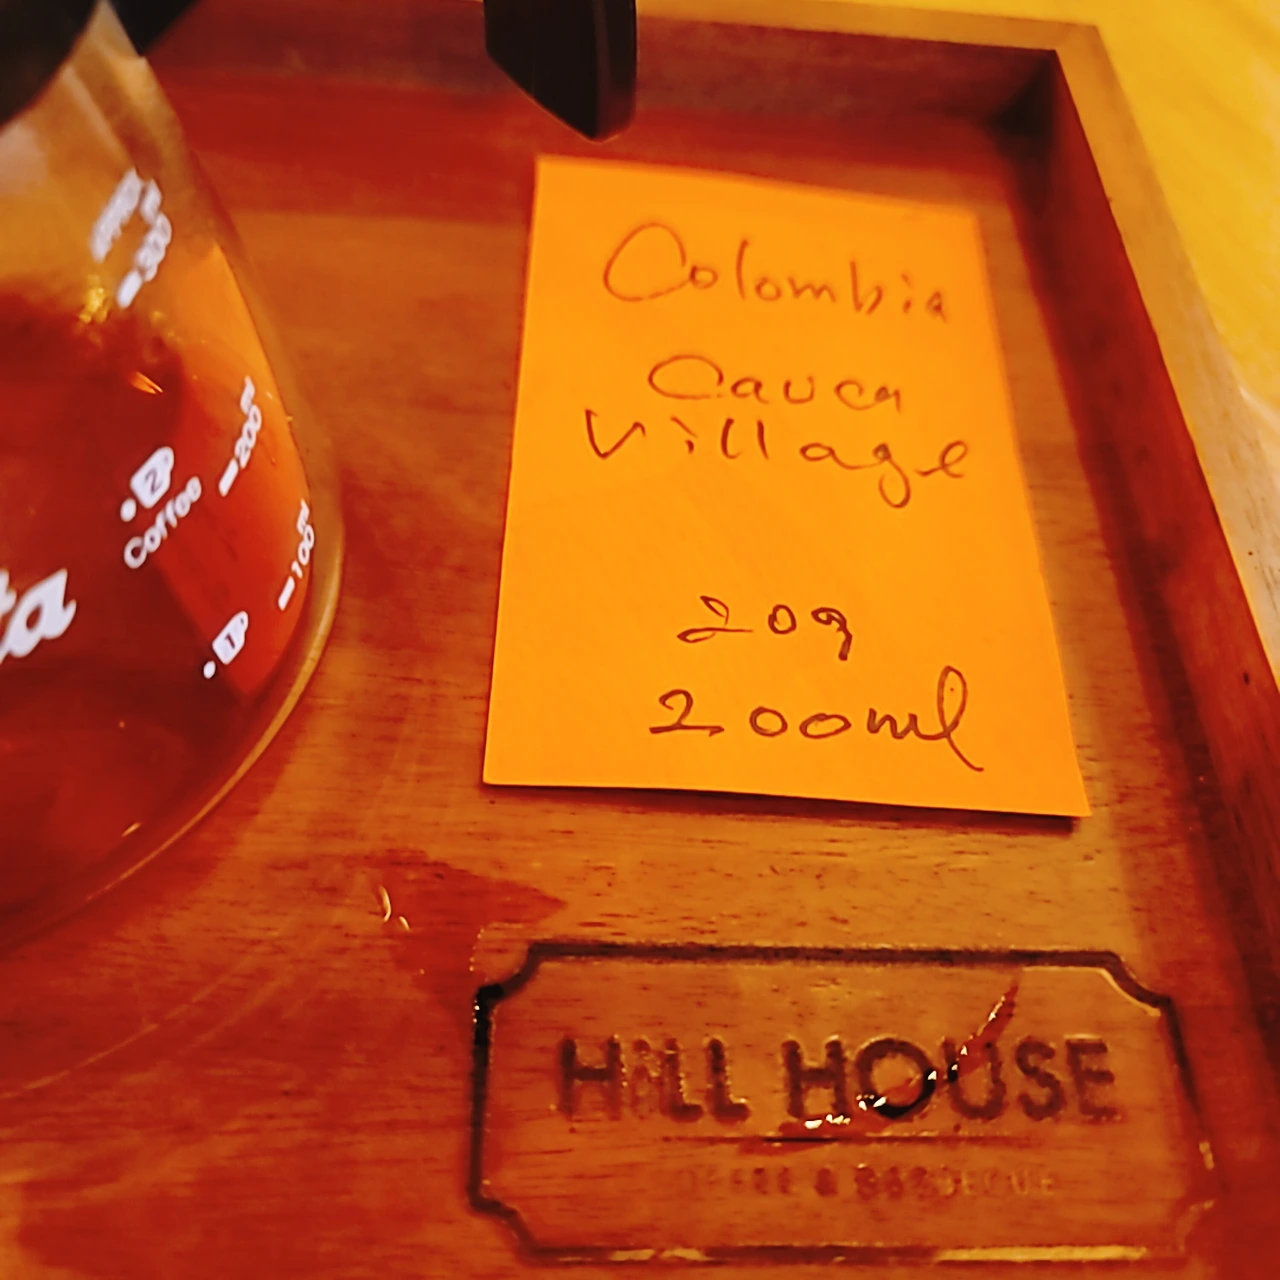 Colombia
Cauca
Village
20g
200ml
300
200ml
2
Coffee
100ml
1
ta
HILL HOUSE
COFFEE & BARBECUE